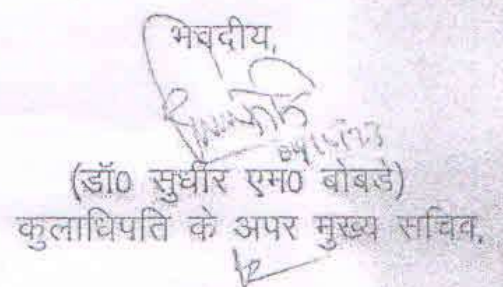 भवदीय,
(डॉ0 सुधीर एम0 बोबडे)
कुलाधिपति के अपर मुख्य सचिव,